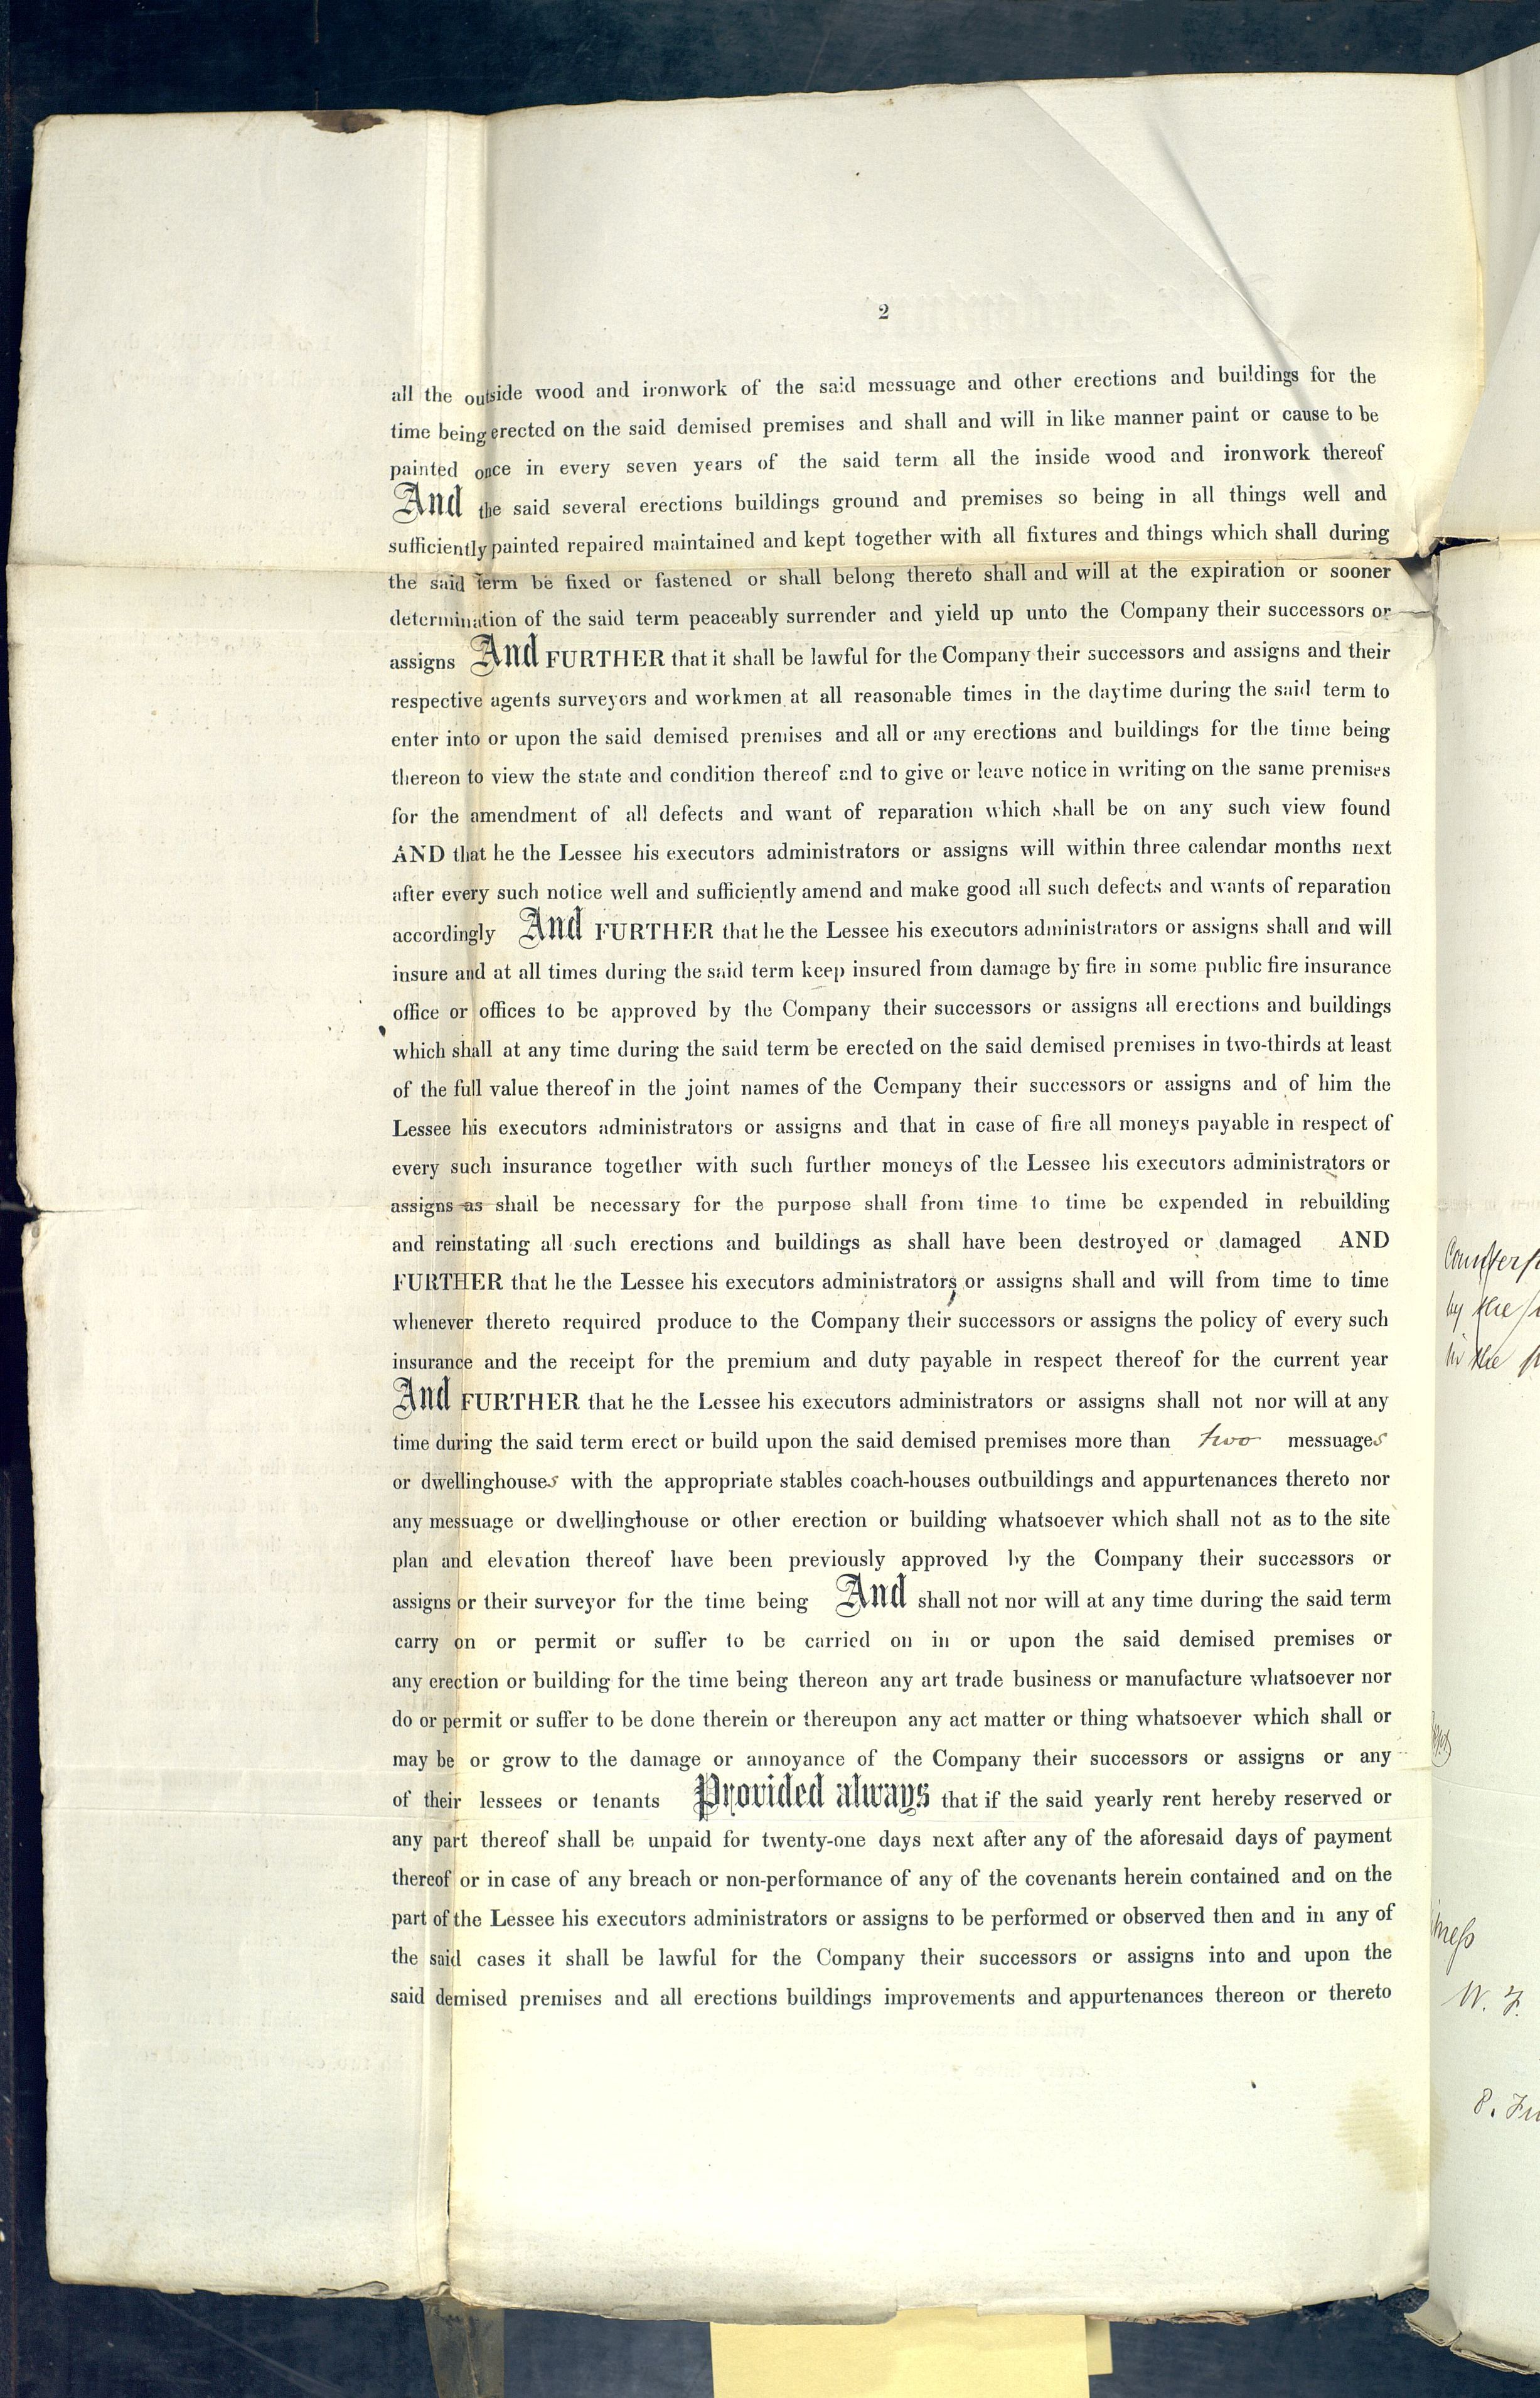 2
all the outside wood and ironwork of the said messuage and other erections and buildings for the
time being erected on the said demised premises and shall and will in like manner paint or cause to be
painted once in every seven years of the said term all the inside wood and ironwork thereof
And the said several erections buildings ground and premises so being in all things well and
sufficiently painted repaired maintained and kept together with all fixtures and things which shall during
the said term be fixed or fastened or shall belong thereto shall and will at the expiration or sooner
determination of the said term peaceably surrender and yield up unto the Company their successors or
assigns And FURTHER that it shall be lawful for the Company their successors and assigns and their
respective agents surveyors and workmen at all reasonable times in the daytime during the said term to
enter into or upon the said demised premises and all or any erections and buildings for the time being
thereon to view the state and condition thereof and to give or leave notice in writing on the same premises
for the amendment of all defects and want of reparation which shall be on any such view found
AND that he the Lessee his executors administrators or assigns will within three calendar months next
after every such notice well and sufficiently amend and make good all such defects and wants of reparation
accordingly And FURTHER that he the Lessee his executors administrators or assigns shall and will
insure and at all times during the said term keep insured from damage by fire in some public fire insurance
office or offices to be approved by the Company their successors or assigns all erections and buildings
which shall at any time during the said term be erected on the said demised premises in two-thirds at least
of the full value thereof in the joint names of the Company their successors or assigns and of him the
Lessee his executors administrators or assigns and that in case of fire all moneys payable in respect of
every such insurance together with such further moneys of the Lessee his executors administrators or
assigns as shall be necessary for the purpose shall from time to time be expended in rebuilding
and reinstating all such erections and buildings as shall have been destroyed or damaged AND
FURTHER that he the Lessee his executors administrators or assigns shall and will from time to time
whenever thereto required produce to the Company their successors or assigns the policy of every such
insurance and the receipt for the premium and duty payable in respect thereof for the current year
And FURTHER that he the Lessee his executors administrators or assigns shall not nor will at any
time during the said term erect or build upon the said demised premises more than two messuages
or dwellinghouses with the appropriate stables coach-houses outbuildings and appurtenances thereto nor
any messuage or dwellinghouse or other erection or building whatsoever which shall not as to the site
plan and elevation thereof have been previously approved by the Company their successors or
assigns or their surveyor for the time being And shall not nor will at any time during the said term
carry on or permit or suffer to be carried on in or upon the said demised premises or
any erection or building for the time being thereon any art trade business or manufacture whatsoever nor
do or permit or suffer to be done therein or thereupon any act matter or thing whatsoever which shall or
may be or grow to the damage or annoyance of the Company their successors or assigns or any
of their lessees or tenants Provided always that if the said yearly rent hereby reserved or
any part thereof shall be unpaid for twenty-one days next after any of the aforesaid days of payment
thereof or in case of any breach or non-performance of any of the covenants herein contained and on the
part of the Lessee his executors administrators or assigns to be performed or observed then and in any of
the said cases it shall be lawful for the Company their successors or assigns into and upon the
said demised premises and all erections buildings improvements and appurtenances thereon or thereto
by the
in the
W.
8.